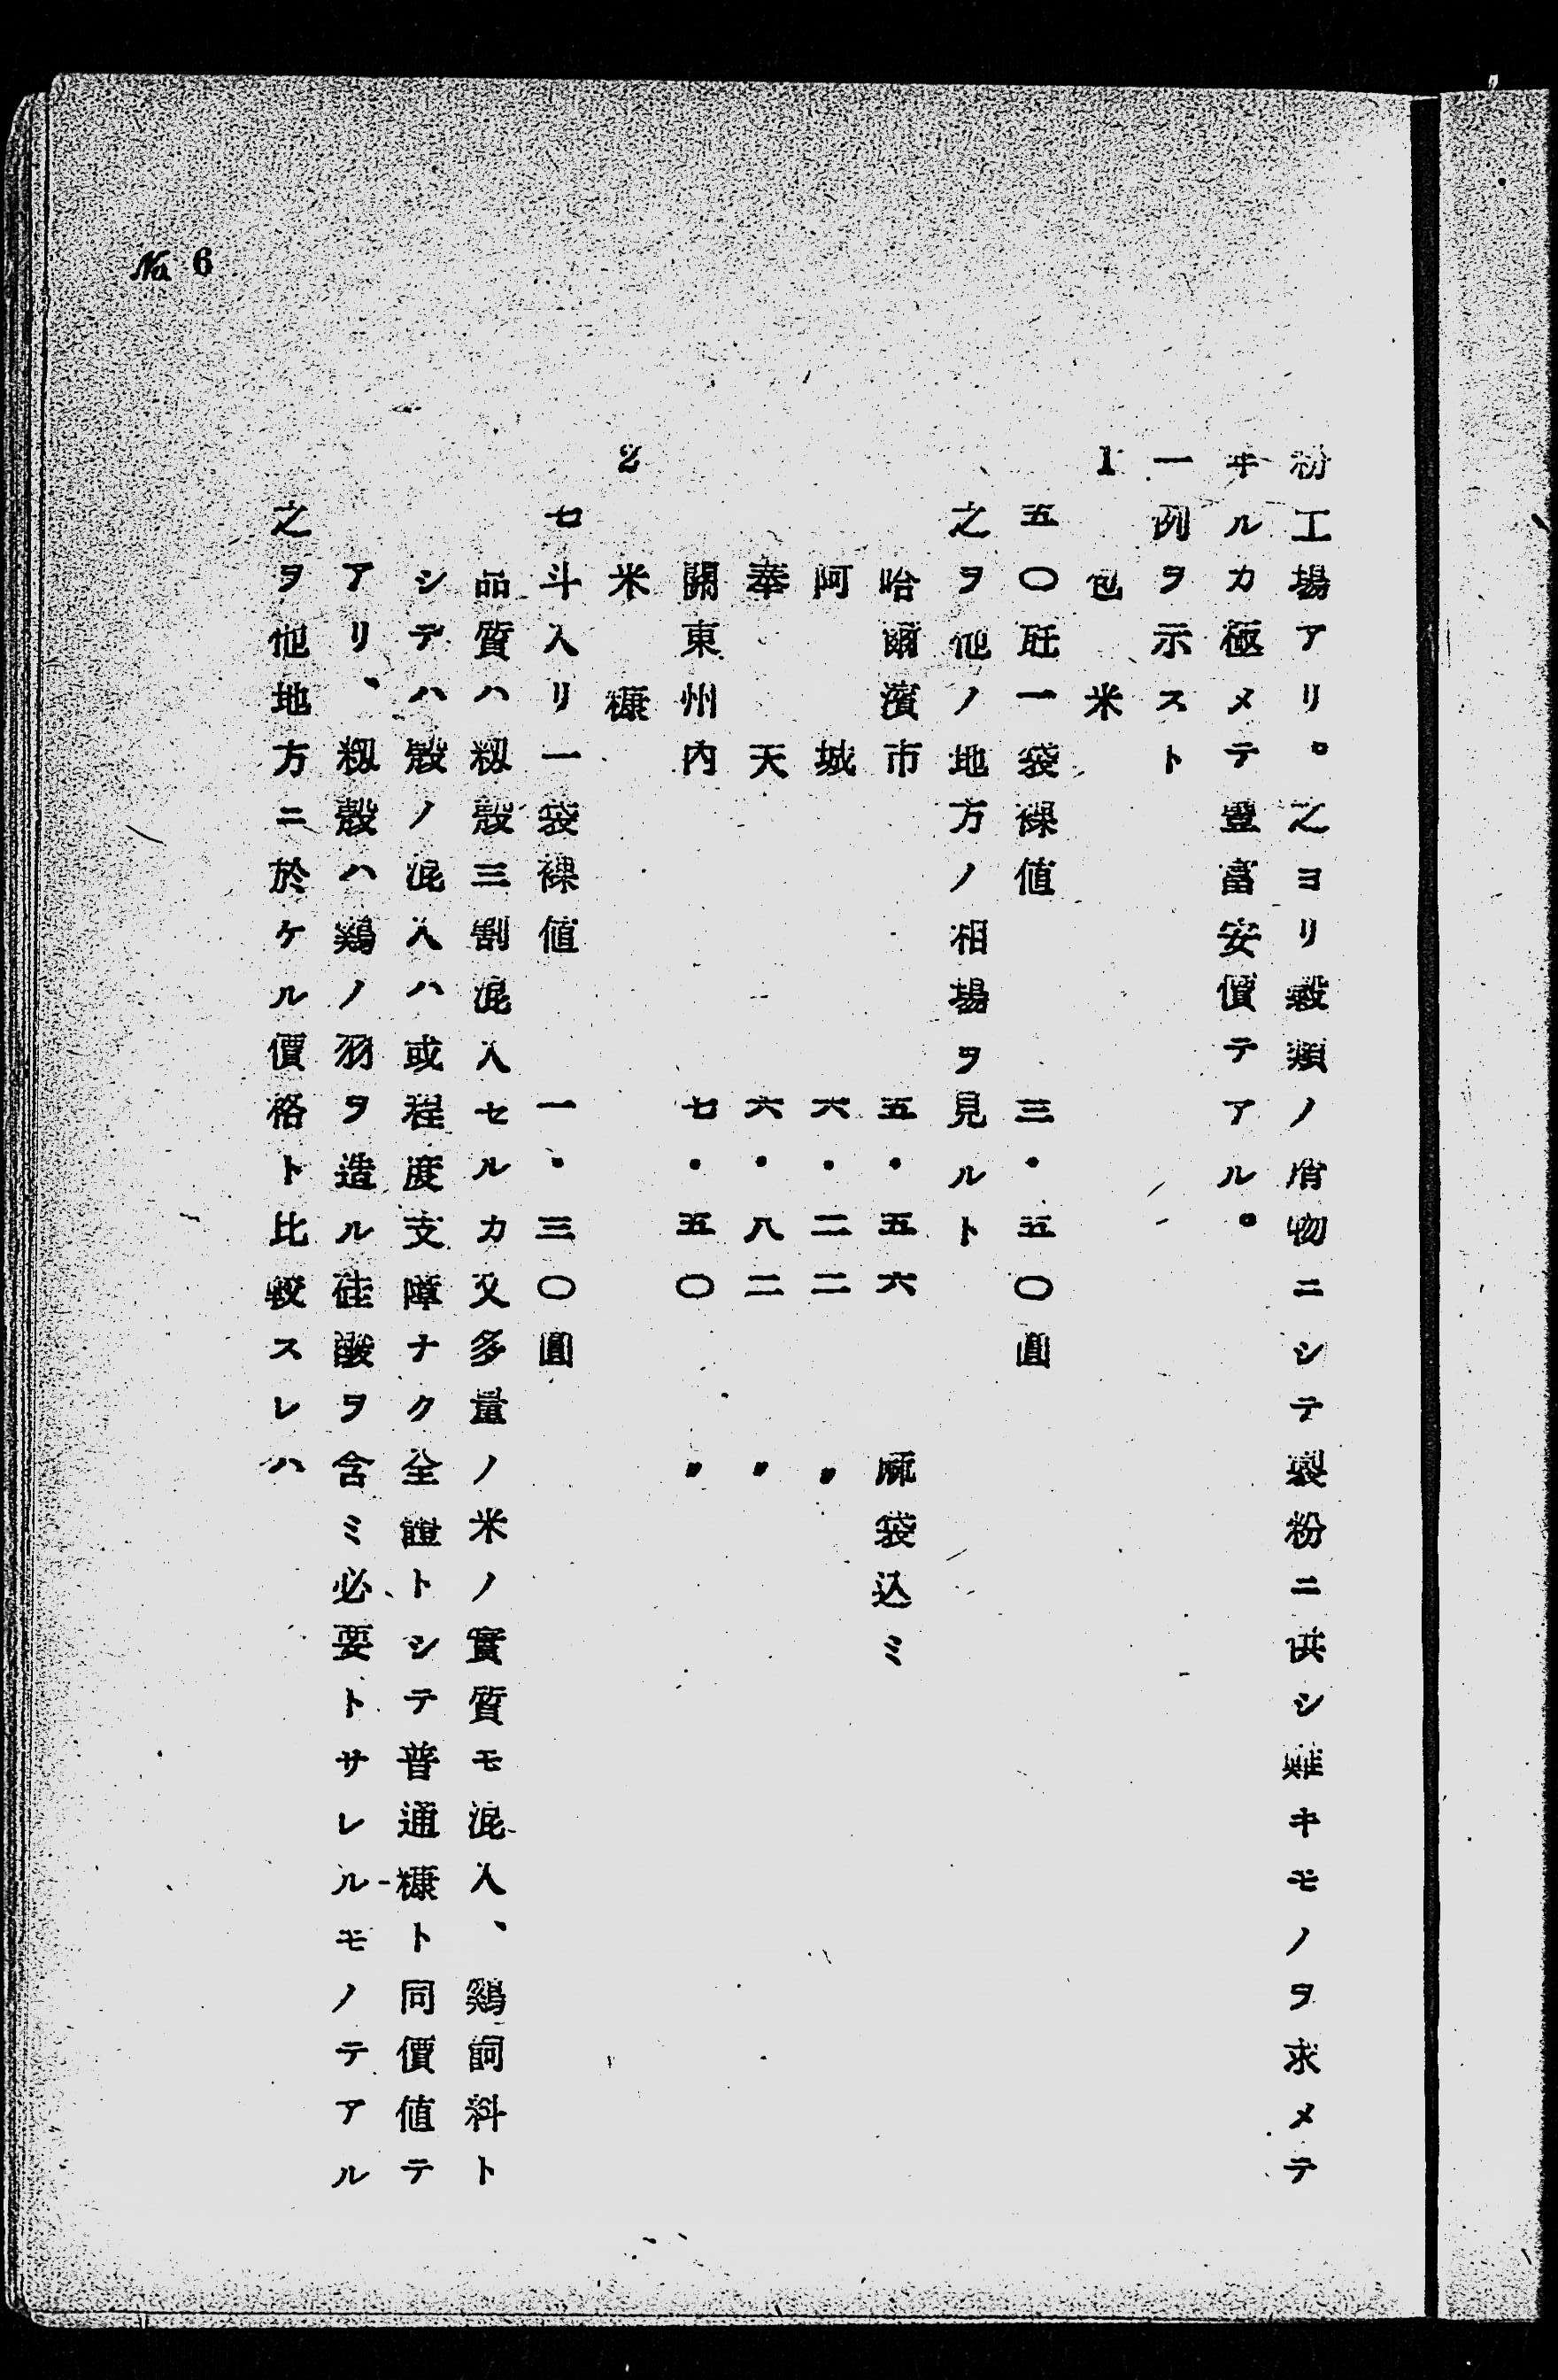 № 6
粉工場アリ。之ヨリ穀類ノ屑物ニシテ製粉ニ供シ難キモノヲ求メテ
ヰルカ極メテ豐富安價テアル。
一例ヲ示スト
1 包米
五〇瓩一袋裸値 三・五〇圓
之ヲ他ノ地方ノ相場ヲ見ルト
哈爾濱市 五・五六 麻袋込ミ
阿城 六・二二 〃
奉天 六・八二 〃
關東州內 七・五〇 〃
2 米糠
七斗入リ一袋裸値 一・三〇圓
品質ハ籾殼三割混入セルカ又多量ノ米ノ實質モ混入、鷄飼料ト
シテハ殼ノ混入ハ或程度支障ナク全體トシテ普通糠ト同價値テ
アリ、籾殼ハ鷄ノ羽ヲ造ル硅酸ヲ含ミ必要トサレルモノテアル
之ヲ他地方ニ於ケル價格ト比較スレハ